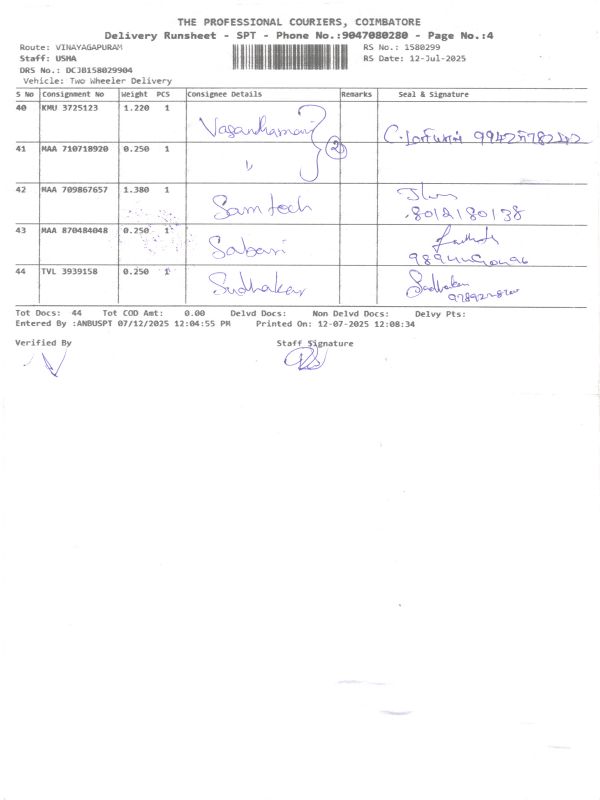 THE PROFESSIONAL COURIERS, COIMBATORE
Delivery Runsheet - SPT - Phone No.:9047080280 - Page No.:4
Route: VINAYAGAPURAM RS No.: 1580299
Staff: USHA RS Date: 12-Jul-2025
DRS No.: DCJB158029904
Vehicle: Two Wheeler Delivery
S No Consignment No Weight PCS Consignee Details Remarks Seal & Signature
40 KMU 3725123 1.220 1 Vasandhamani
41 MAA 710718920 0.250 1 " 2
42 MAA 709867657 1.380 1 Samtech 8012180138
43 MAA 870484048 0.250 1 Sabari
44 TVL 3939158 0.250 1 Sudhakar Sudhakar
Tot Docs: 44 Tot COD Amt: 0.00 Delvd Docs: Non Delvd Docs: Delvy Pts:
Entered By :ANBUSPT 07/12/2025 12:04:55 PM Printed On: 12-07-2025 12:08:34
Verified By Staff Signature